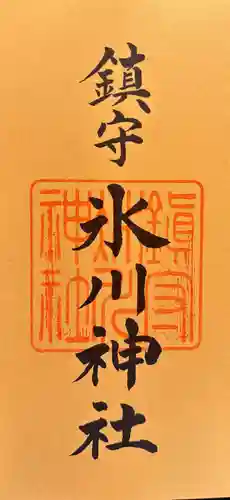 鎮守
氷川神社
鎮守
氷川
神社